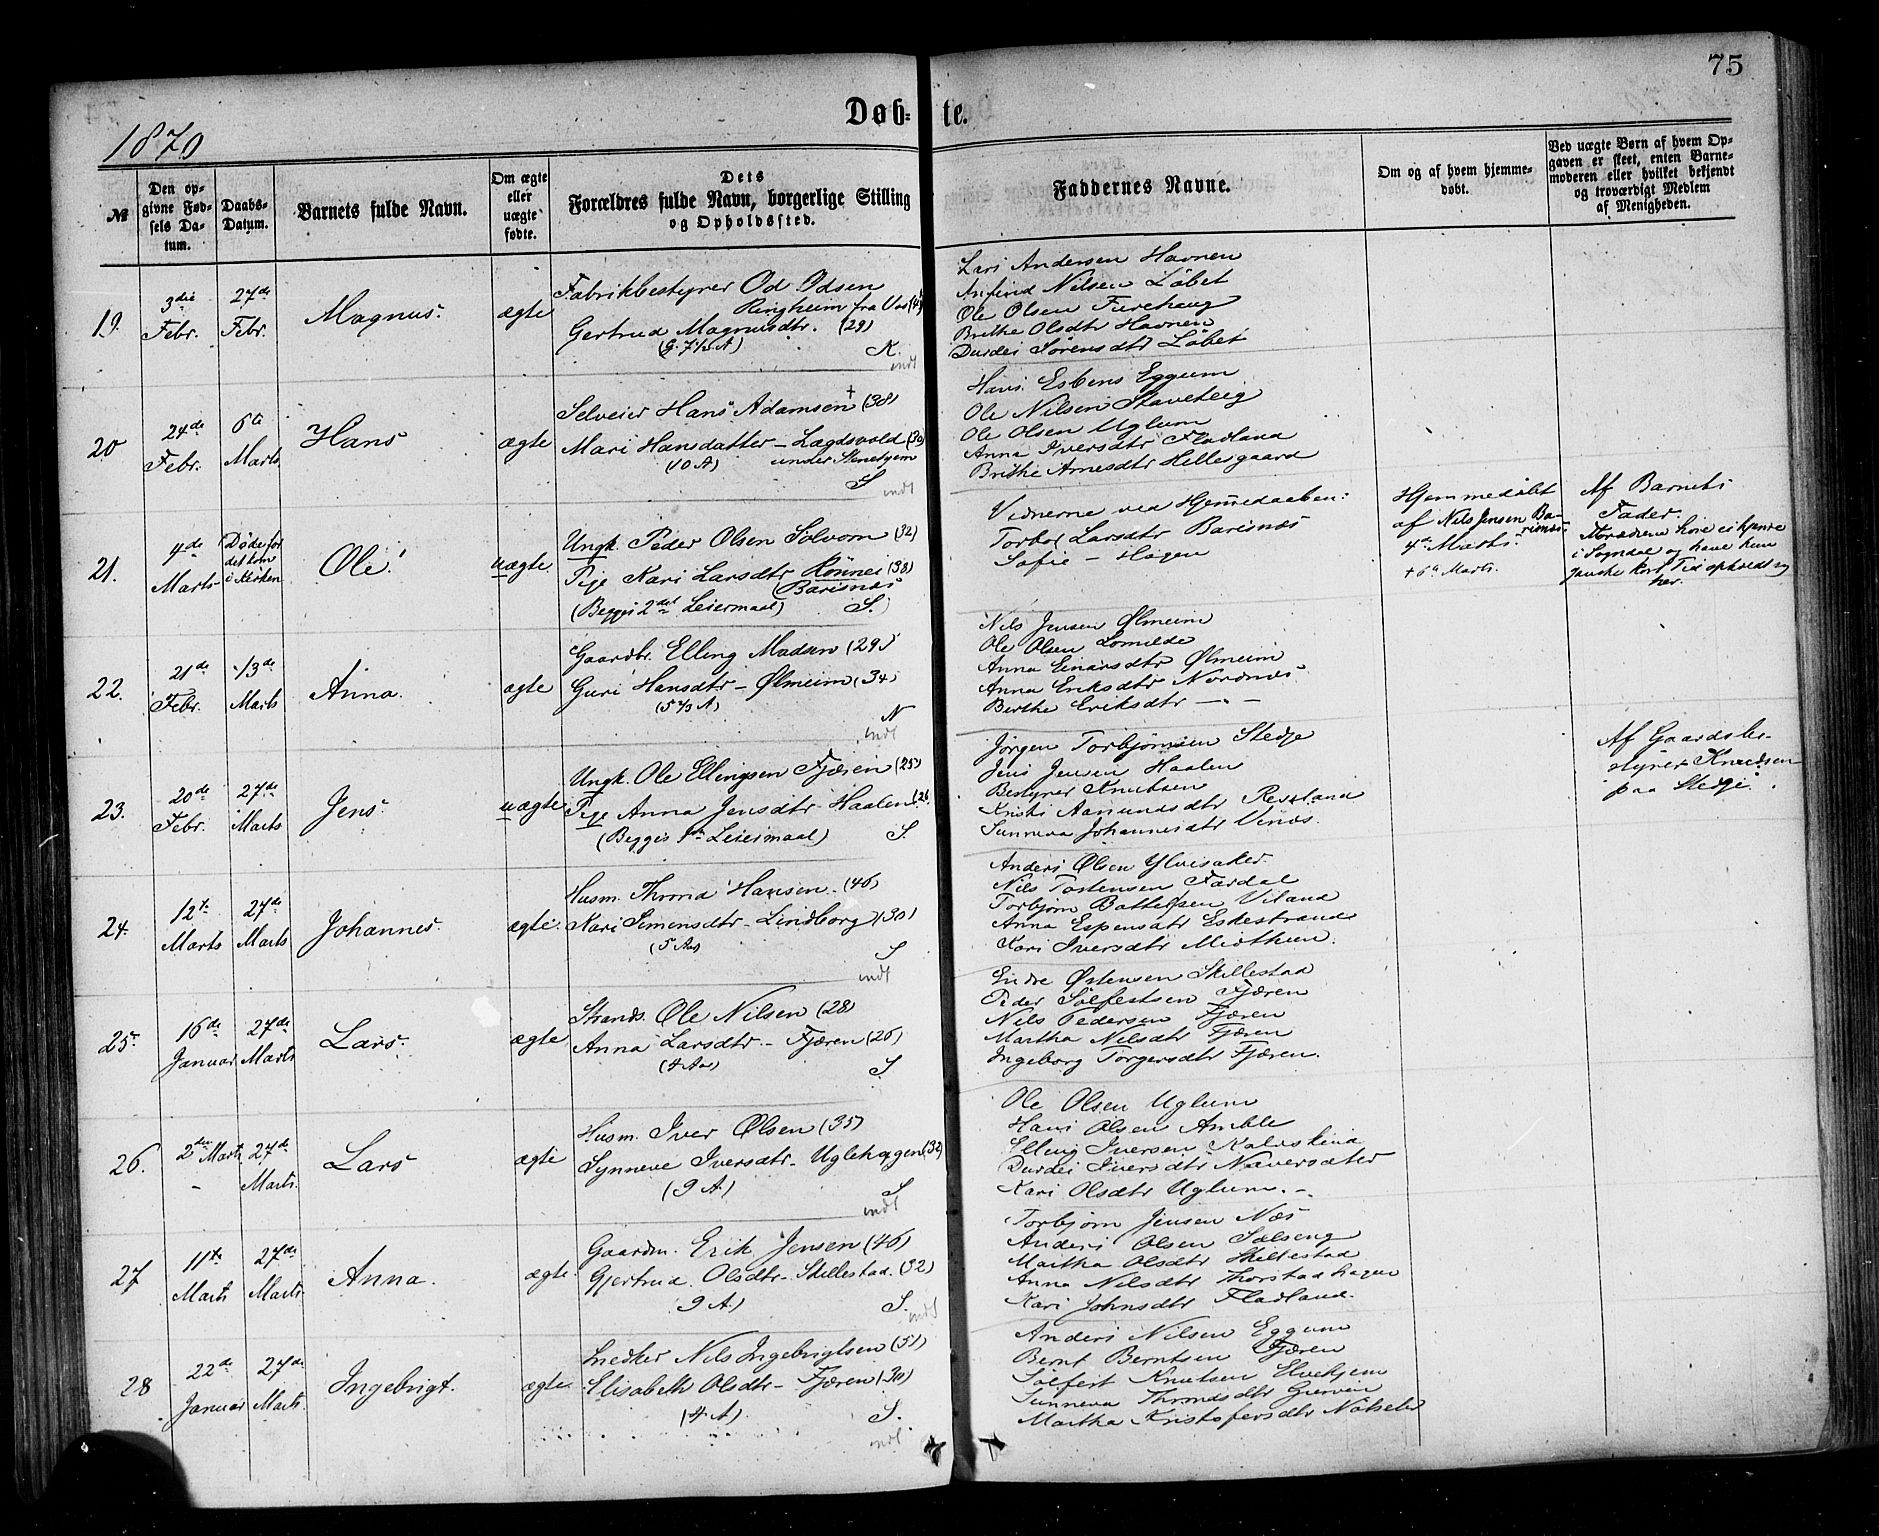 75
Døb- te.
1870
№
Den op-
givne Fød-
sels Da-
tum.
Daabs-
Datum.
Barnets fulde Navn.
Om ægte
eller
uægte
fødte.
Dets
Forældres fulde Navn, borgerlige Stilling
og Opholdssted.
Faddernes Navne.
Om og af hvem hjemme-
døbt.
Ved uægte Børn af hvem Op-
gaven er skeet, enten Barne-
moderen eller hvilket bekjendt
og troværdigt Medlem
af Menigheden.
19.
3die
Febr.
27de
Febr.
Magnus.
ægte
Fabrikbestyrer Od Odsen
Ringheim fra Vos
Gertrud Magnusdtr. (29)
K.
indt
Lars Andersen Havnen
Anfind Nilsen Løbet
Ole Olsen Furehaug
Brithe Olsdtr Havnen
Durdei Sørensdtr Løbet
20
24de
Febr.
6te
Marts
Hans
ægte
Selveier Hans Adamsen + (38)
Mari Hansdatter - Lægdsvold (30)
(10 A) under Stenehjem
S
indt
Hans Esbens Eggum
Ole Nilsen Staveteig
Ole Olsen Uglum
Anna Iversdtr Fladland
Brithe Arnesdtr Hellesgaard
21.
4de
Marts
Døde før
det kom
i Kirken
Ole!
uægte
Ungk. Peder Olsen Solvorn (32)
Pige Kari Larsdtr Rønnei (38)
(Barsnæs
(Begges 2det Leiermaal) S.
Vidnerne ved Hjemmedaaben:
Torber Larsdtr Barsnæs
Sofie - Hagen
Hjemmedøbt
af Nils Jensen Ba-
rsnæs
4de Marts.
+ 6te Marts.
Af Barnets
Fader.
Forældrene høre ei hjemme
i Sogndal og have kun
ganske kort Tid opholdt sig
her.
22.
21de
Febr.
13de
Marts
Anna.
ægte
Gaardbr. Elling Madsen (29)
Guri Hansdtr - Ølmeim (34)
(5 1/3 A)
N
indt
Nils Jensen Ølmeim
Ole Olsen Lomelde
Anna Einarsdtr Ølmeim
Anna Eriksdtr Nordnæs
Berthe Eriksdtr - " -
23.
20de
Febr.
27de
Marts
Jens
uægte
Ungk. Ole Ellingsen Fjæren (25)
Pige Anna Jensdtr - Haalen (26
(Begges 1ste Leiermaal) S.
Jørgen Torbjørnsen Stedje
Jens Jensen Haalen
Bestyrer Knutsen
Kristi Aamundsdtr Restland
Sunneva Johannesdtr Vinæs.
Af Gaardsbe-
styrer Knudsen
paa Stedje.
24.
12te
Marts
27de
Marts
Johannes.
ægte.
Husm. Thrond Hansen - (46)
Kari Simensdtr - Lindborg (30)
(5 Aar)
S
indt
Anders Olsen Ylvisaker
Nils Tostensen Fardal
Torbjørn Bottelsen Viland
Anna Espensdtr Eskestrand
Kari Iversdtr Midthun.
25
16de
Januar
27de
Marts
Lars
ægte
Strands. Ole Nilsen (28)
Anna Larsdtr. - Fjæren (26)
(4 Aar)
S.
Endre Østensen Skillestad
Peder Solfestsen Fjæren
Nils Pedersen Fjæren
Martha Nilsdtr Fjæren
Ingeborg Torgersdtr Fjæren.
26.
2den Marts
-
27de
Marts.
Lars
ægte
Husm. Iver Olsen (35)
Synneve Iversdtr - Uglehagen (32)
(9 A.)
S
indt
Ole Olsen Uglum
Hans Olsen Amble
Elling Iversen Kalvskind
Durdei Iversdtr Næversæter
Kari Olsdtr Uglum. -
27
11te
Marts
27de
Marts
Anna.
ægte
Gaardm. Erik Jensen (46)
Gjertrud. Olsdtr - Skillestad. (32)
9 A.)
S.
indt
Torbjørn Jensen Næs
Anders Olsen Sølseng
Martha Olsdtr Skillestad
Anna Nilsdtr Thorstadhagen
Kari Johnsdtr Fladland.
28
22de
Januar
27de
Marts.
Ingebrigt.
ægte
Snedker Nils Ingebrigtsen (51)
Elisabeth Olsdtr - Fjæren (30)
(4 A)
S.
indt
Anders Nilsen Eggum
Bernt Berntsen Fjæren
Solfest Knutsen Elvehjem
Sunneva Throndsdtr Gurvin
Martha Kristofersdtr Nølseter